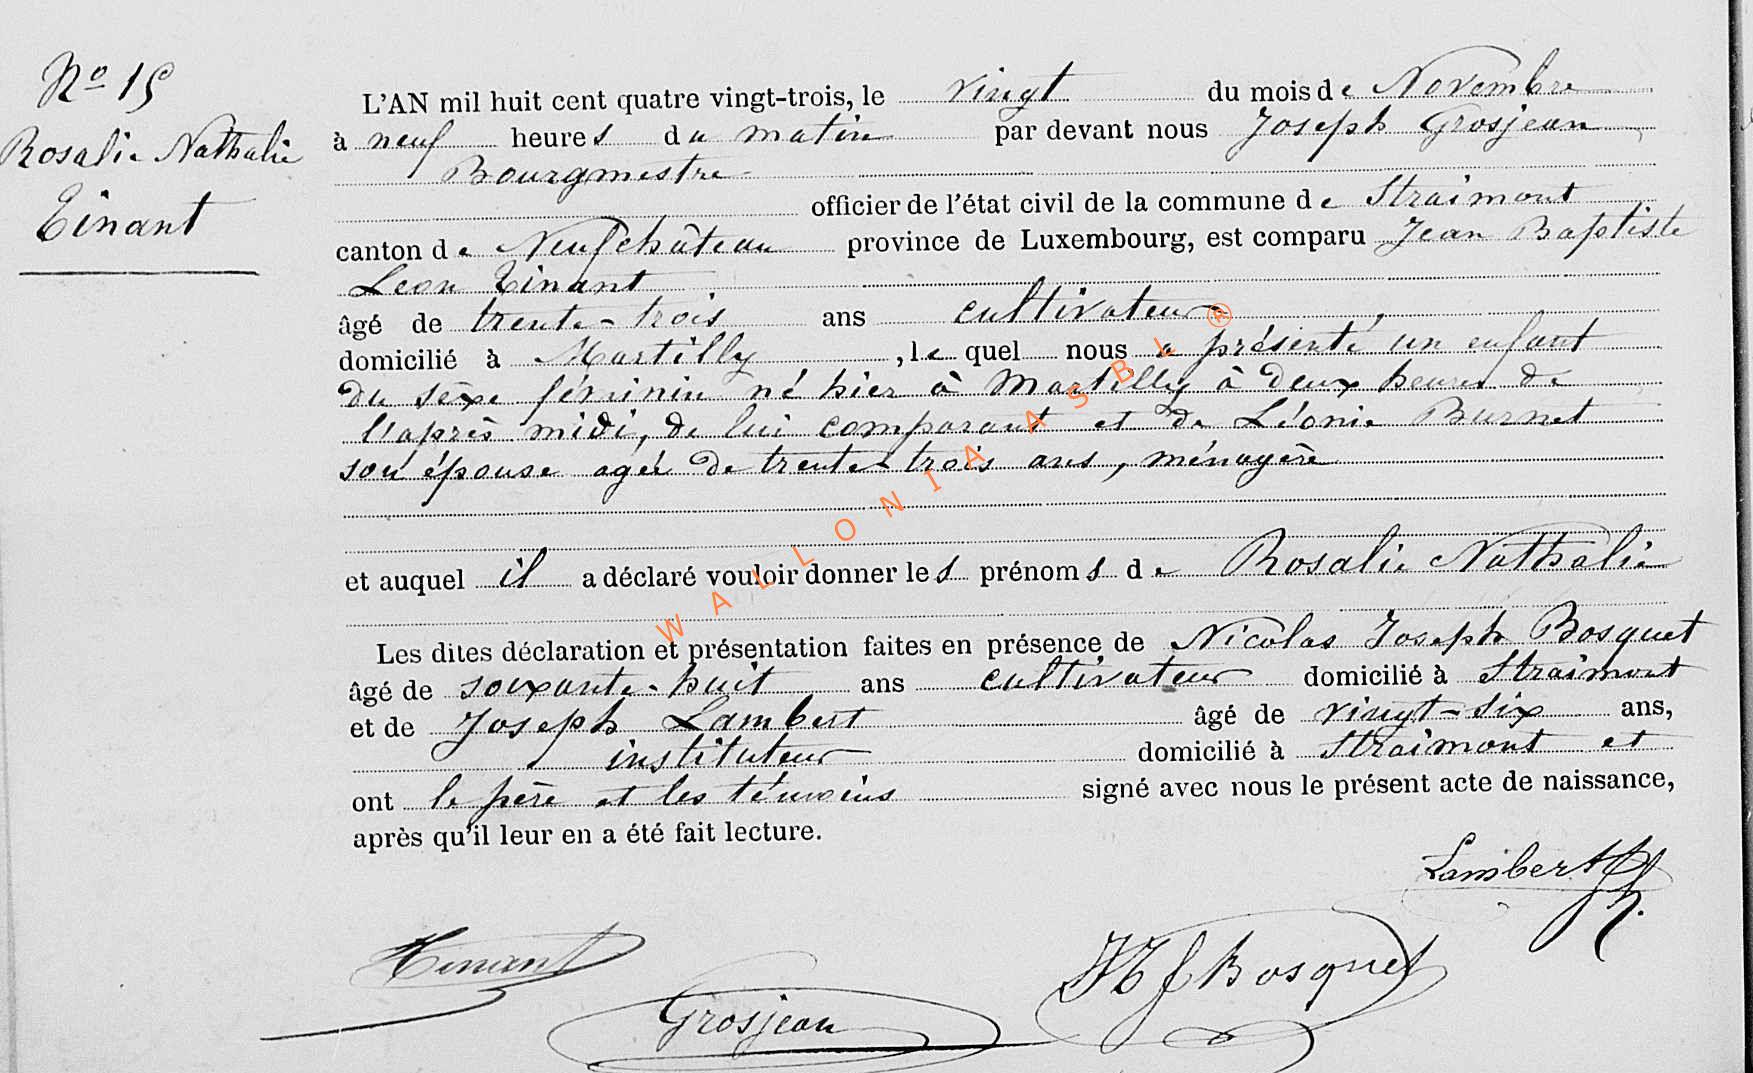 No 15
Rosalie Nathalie
Tinant
L'AN mil huit cent quatre vingt-trois, le vingt du mois de Novembre
à neuf heures du matin par devant nous Joseph Grosjean,
Bourgmestre
officier de l'état civil de la commune de Straimont
canton de Neufchâteau province de Luxembourg, est comparu Jean Baptiste
Leon Tinant
âgé de trente-trois ans cultivateur,
domicilié à Martilly, le quel nous a présenté un enfant
du sexe féminin né hier à Martilly à deux heures de
l'après midi, de lui comparant et de Léonie Burnet
son épouse agée de trente-trois ans, ménagère
et auquel il a déclaré vouloir donner les prénoms de Rosalie Nathalie
Les dites déclaration et présentation faites en présence de Nicolas Joseph Bosquet
âgé de soixante-huit ans cultivateur domicilié à Straimont
et de Joseph Lambert âgé de vingt-six ans,
instituteur domicilié à Straimont et
ont le père et les témoins signé avec nous le présent acte de naissance,
après qu'il leur en a été fait lecture.
Lambert
Tinant
Bosquet
Grosjean
WALLONIA ASBL ®